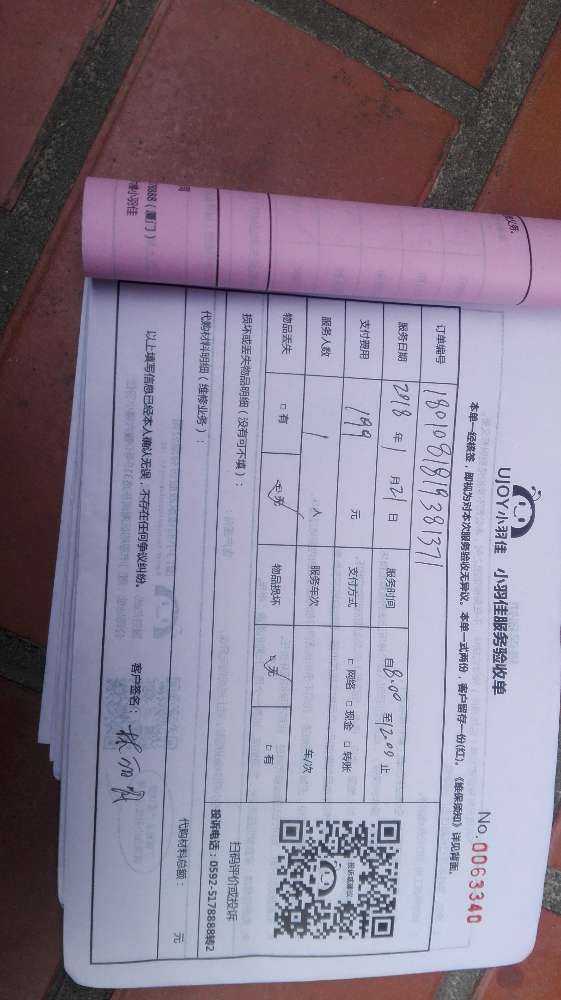 UJOY小羽佳 小羽佳服务验收单
No.0063340
本单一经核签，即视为对本次服务验收无异议。本单一式两份，客户留存一份(红)。《维保须知》详见背面。
订单编号 1801081819381371
服务日期 2018 年 1 月 21 日 服务时间 自 8:00 至 12:00 止
支付费用 199 元 支付方式 □ 网络 □ 现金 □ 转账
服务人数 1 人 服务车次 车/次
物品丢失 □ 有 □ 无 物品损坏 □ 无 □ 有
投诉或建议
扫码评价或投诉
投诉电话：0592-5178888转2
损坏或丢失物品明细（没有可不填）：
代购材料明细（维修业务）：
代购材料总额： 元
以上填写信息已经本人确认无误，不存在任何争议纠纷。 客户签名：